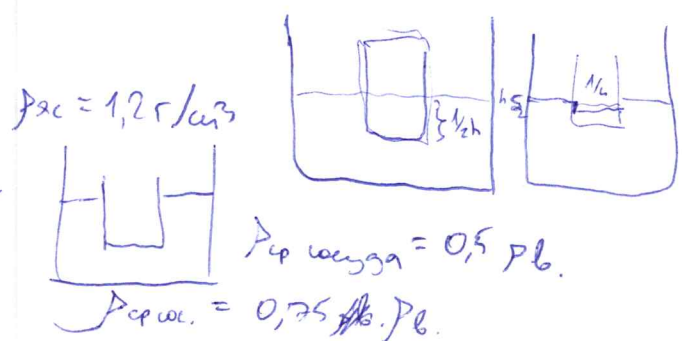 ρж = 1,2 г/см³
1/2 h
1/2
h
ρср сосуда = 0,5 ρв.
ρср сос. = 0,75 ρв.